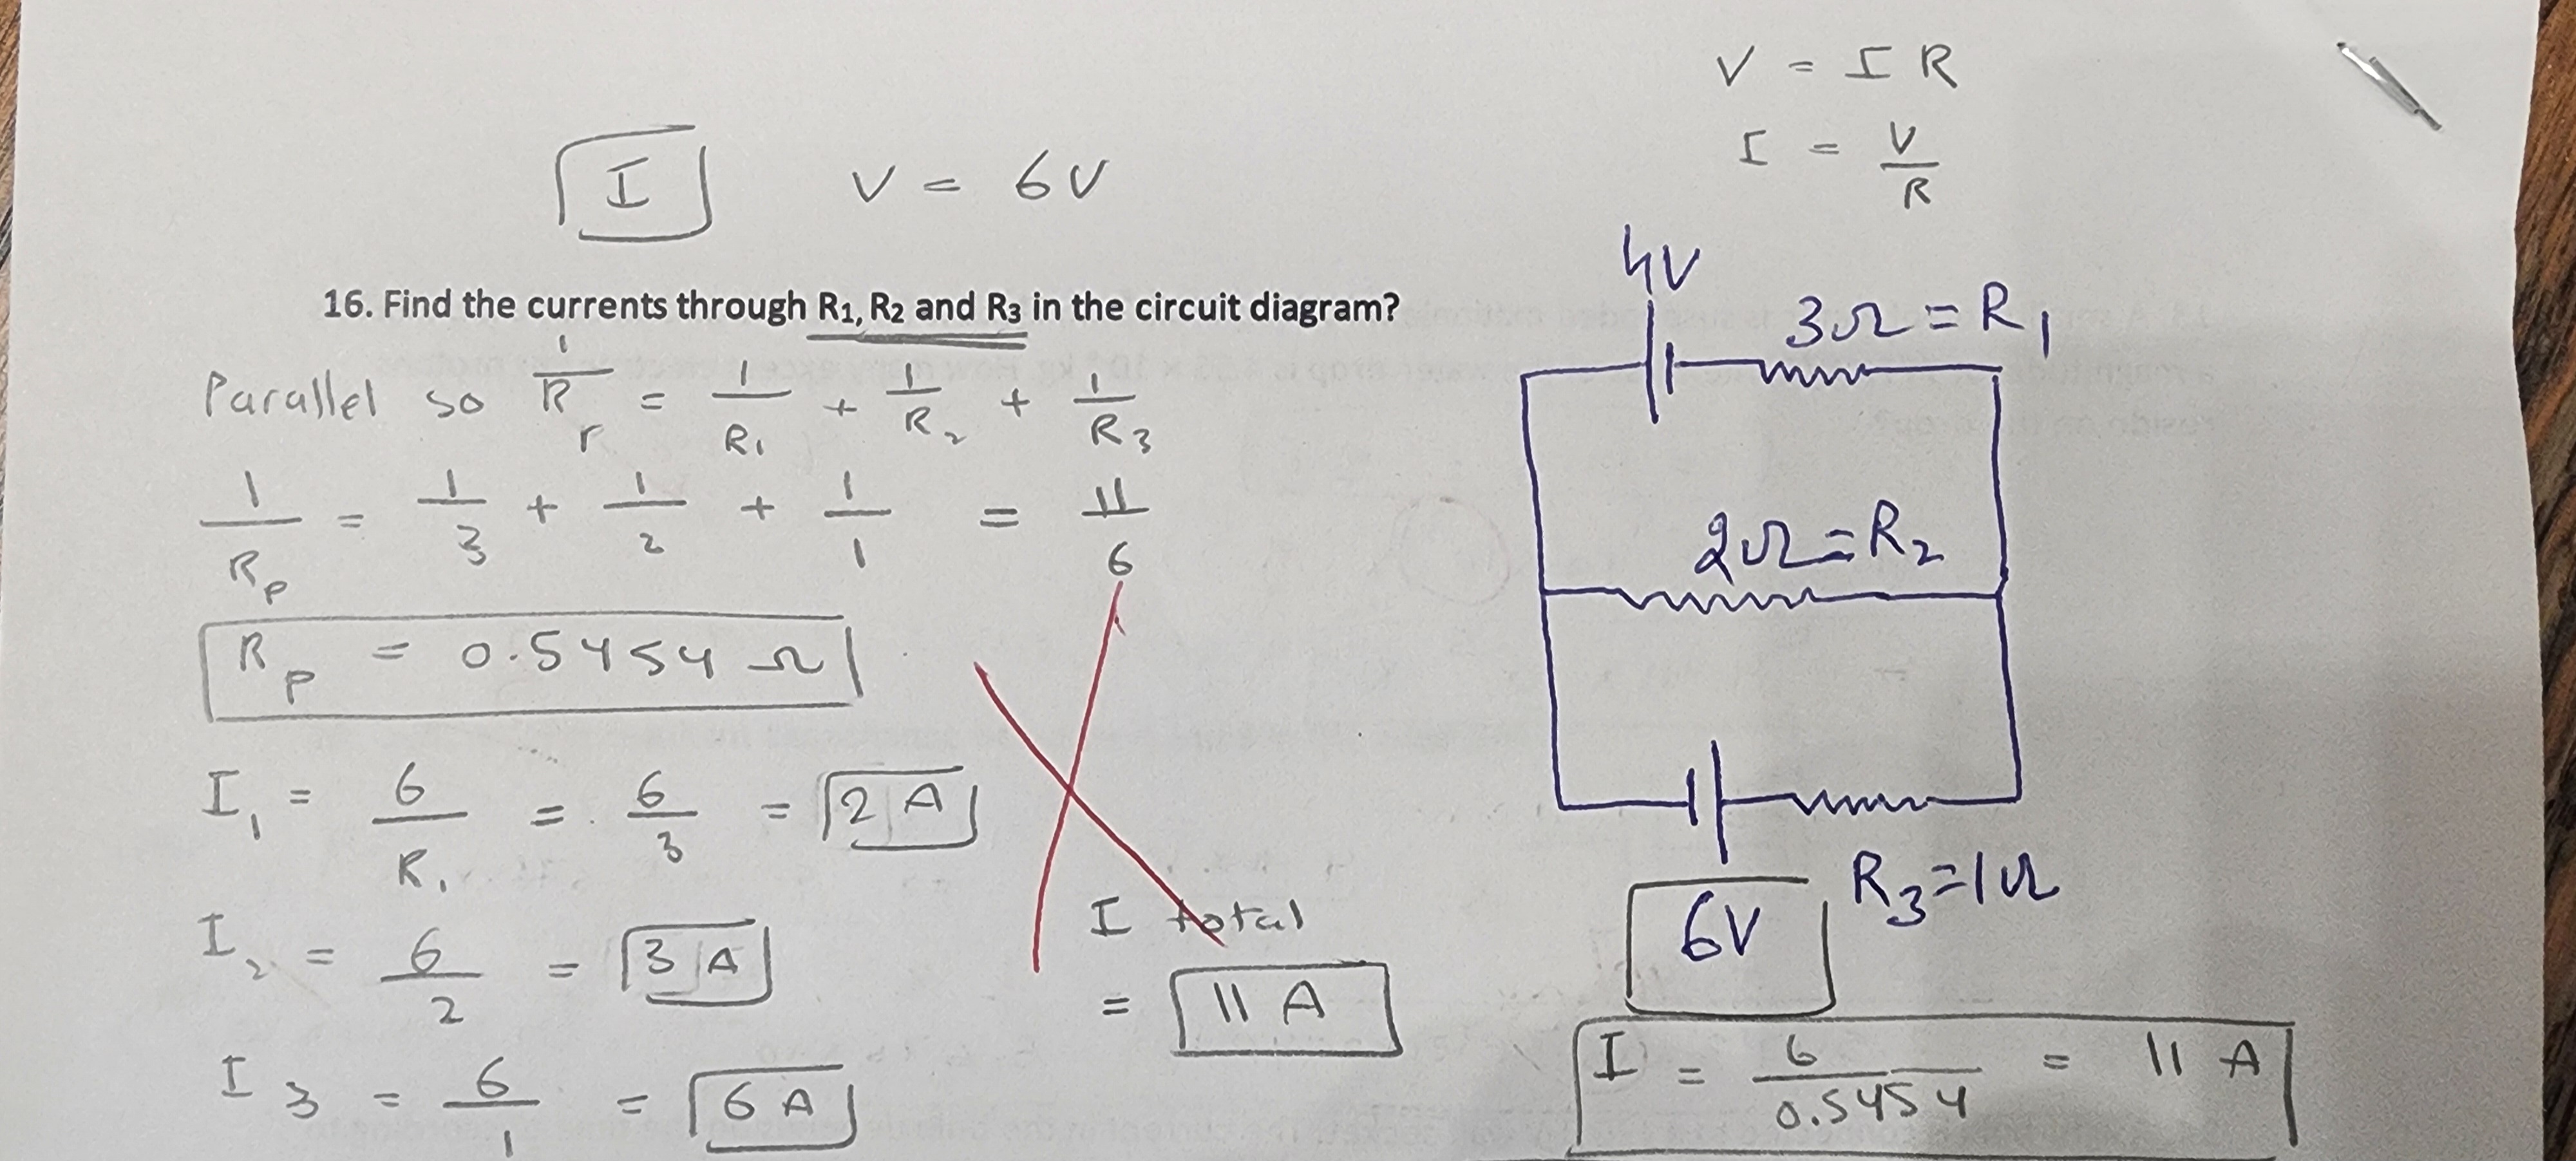 V = I R
I = V/R
I V = 6V
16. Find the currents through R1, R2 and R3 in the circuit diagram?
Parallel so 1/Rr = 1/R1 + 1/R2 + 1/R3
1/Rp = 1/3 + 1/2 + 1/1 = 11/6
Rp = 0.5454 Ω
I1 = 6/R1 = 6/3 = 2 A
I2 = 6/2 = 3 A
I3 = 6/1 = 6 A
I total
= 11 A
4V
3Ω = R1
2Ω = R2
6V
R3 = 1Ω
I = 6/0.5454 = 11 A